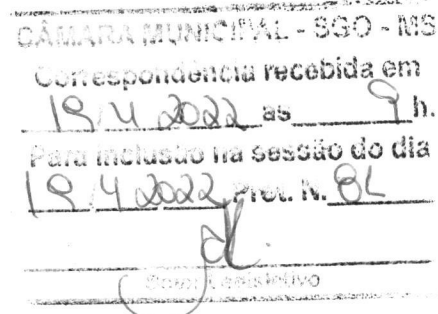 CÂMARA MUNICIPAL - SGO - MS
Correspondência recebida em
19/4 2022 as 9 h.
Para inclusão na sessão do dia
19/4 2022 Prot. N.
Legislativo